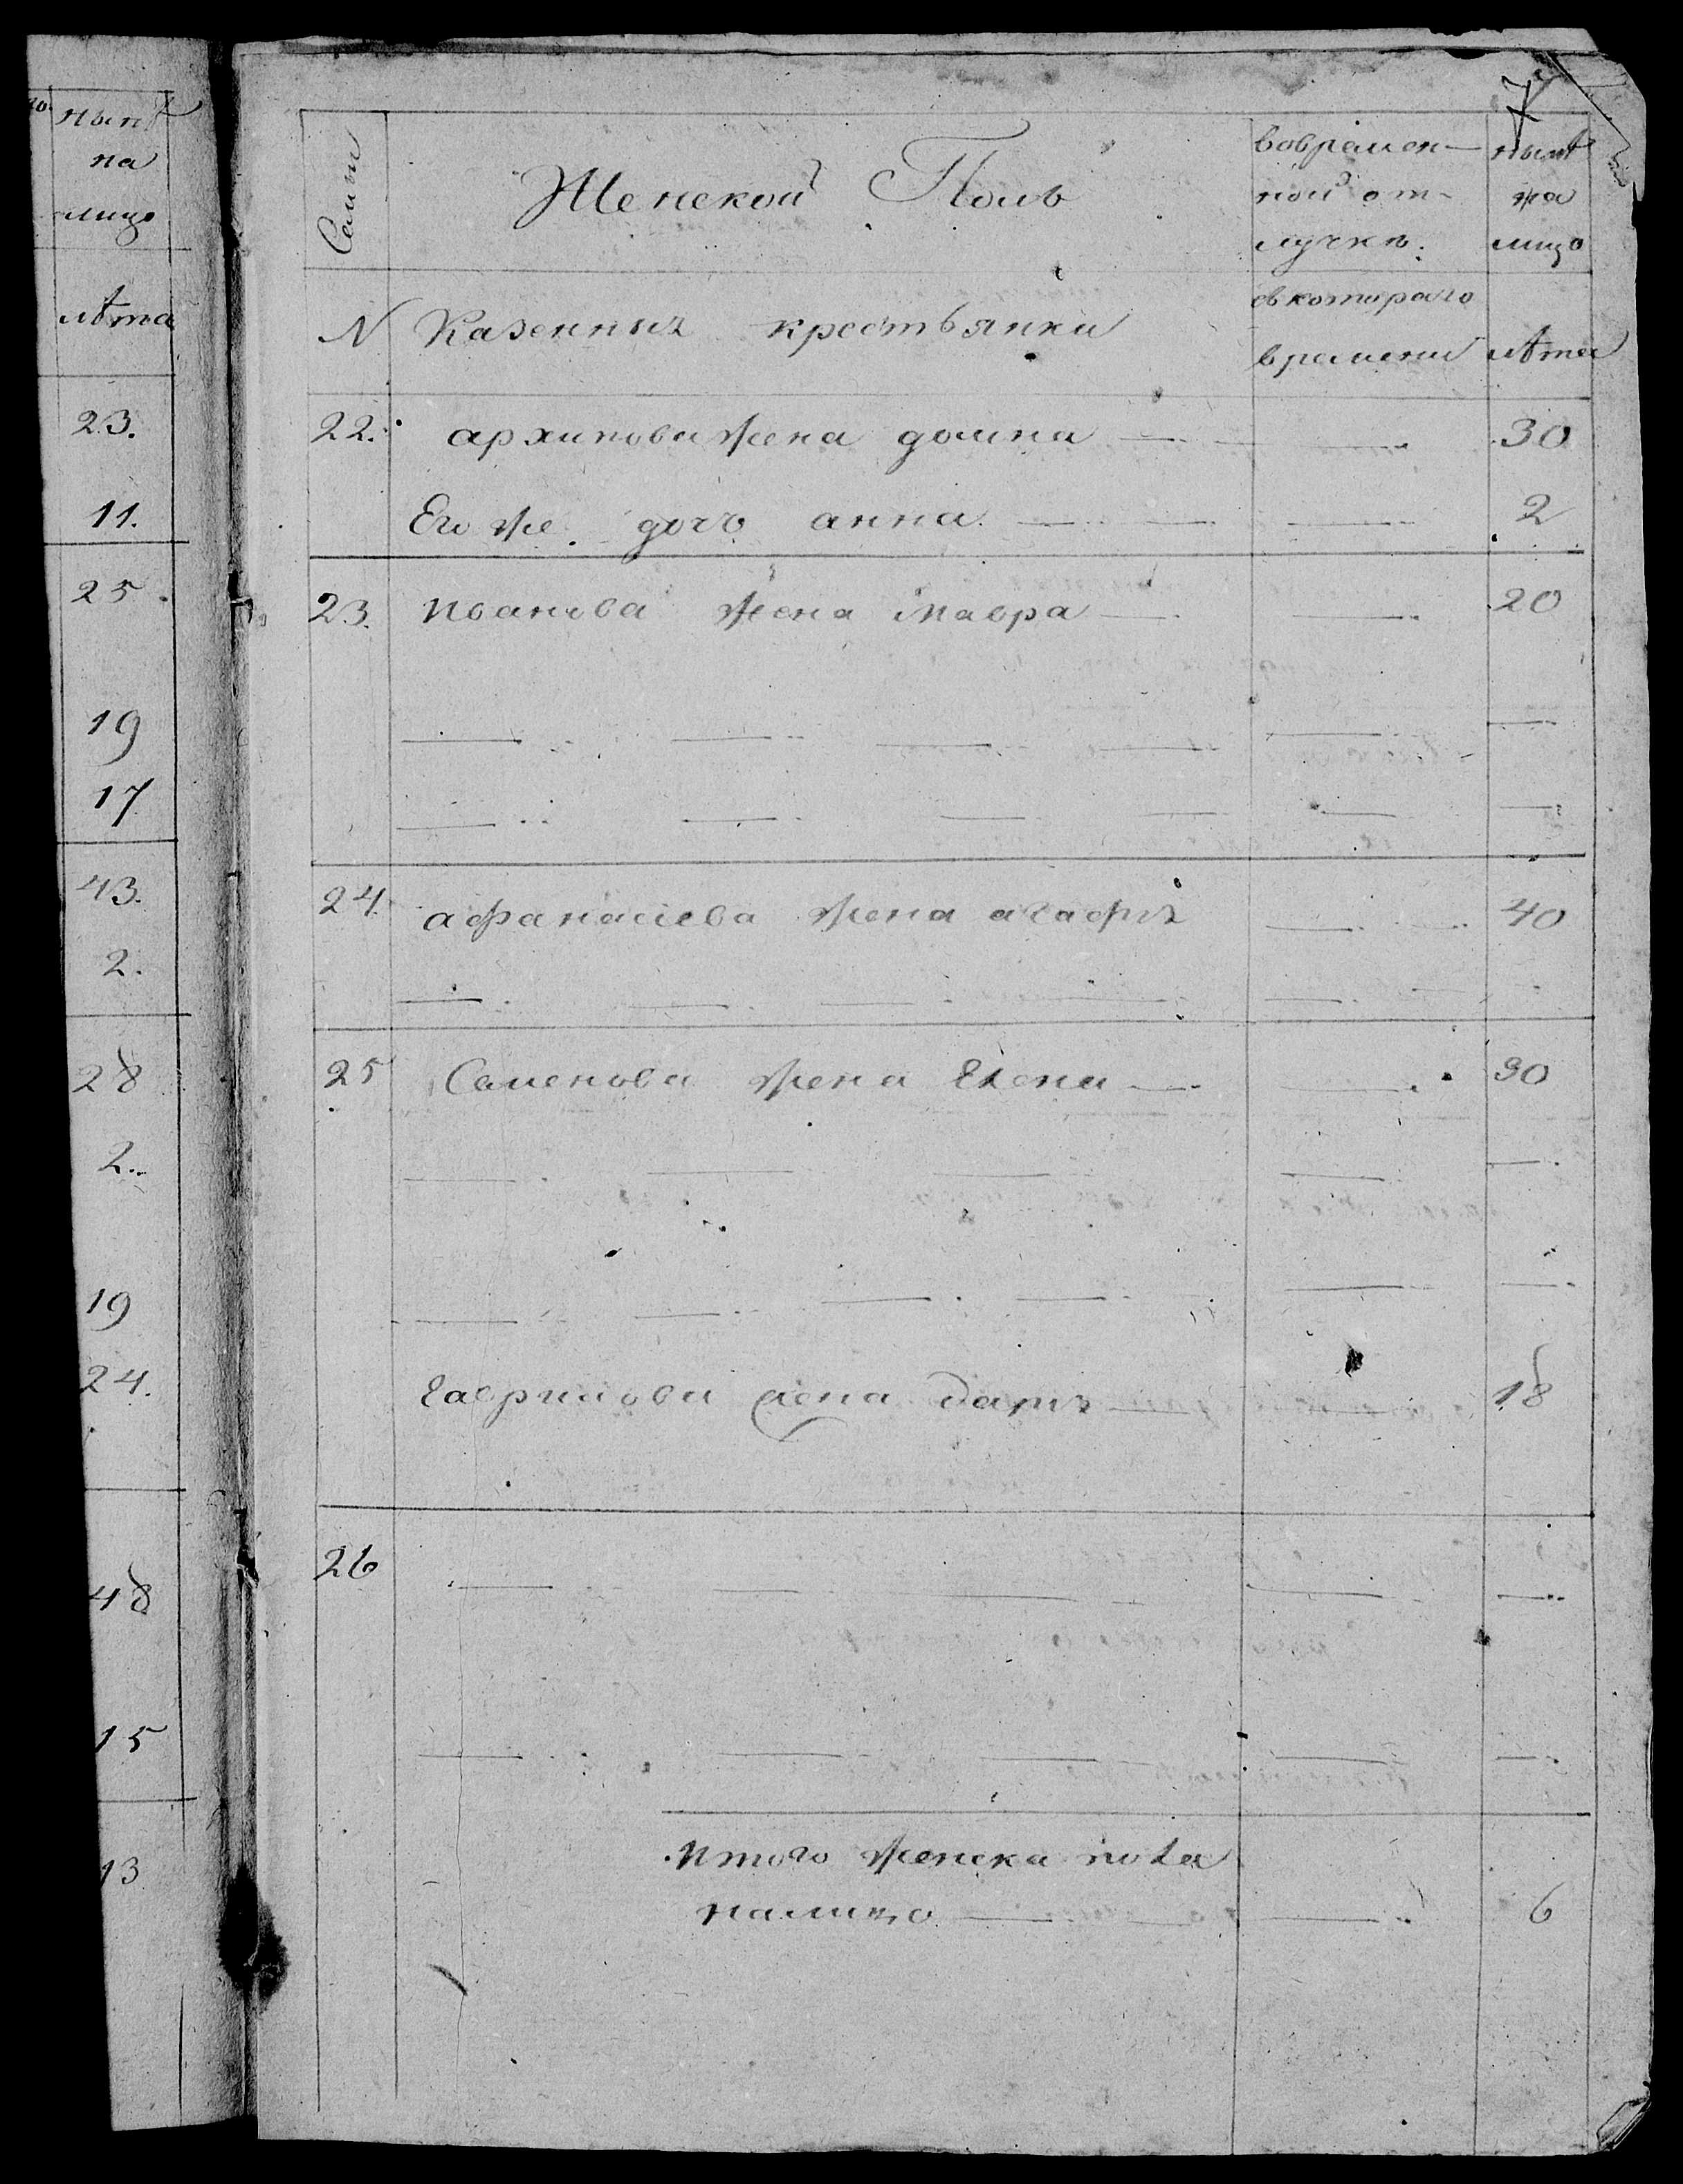 нынѣ
на
лицо
лѣта
23.
11.
25.
19
17
43.
2.
28
2.
19
24.
48
15
13
7
Семьи
Женской Полъ
вовремен-
ной от-
лучкѣ.
нынѣ
на
лицо
N Казенныя крестьянки
скотораго
времени
лѣта
22. архипова жена домна 30
Его же дочь анна 2
23. иванова жена мавра 20
24. афанасіева жена агафія 40
25 Семенова жена Елена 30
гаврилова жена дарія 18
26
итого женска пола
налицо 6